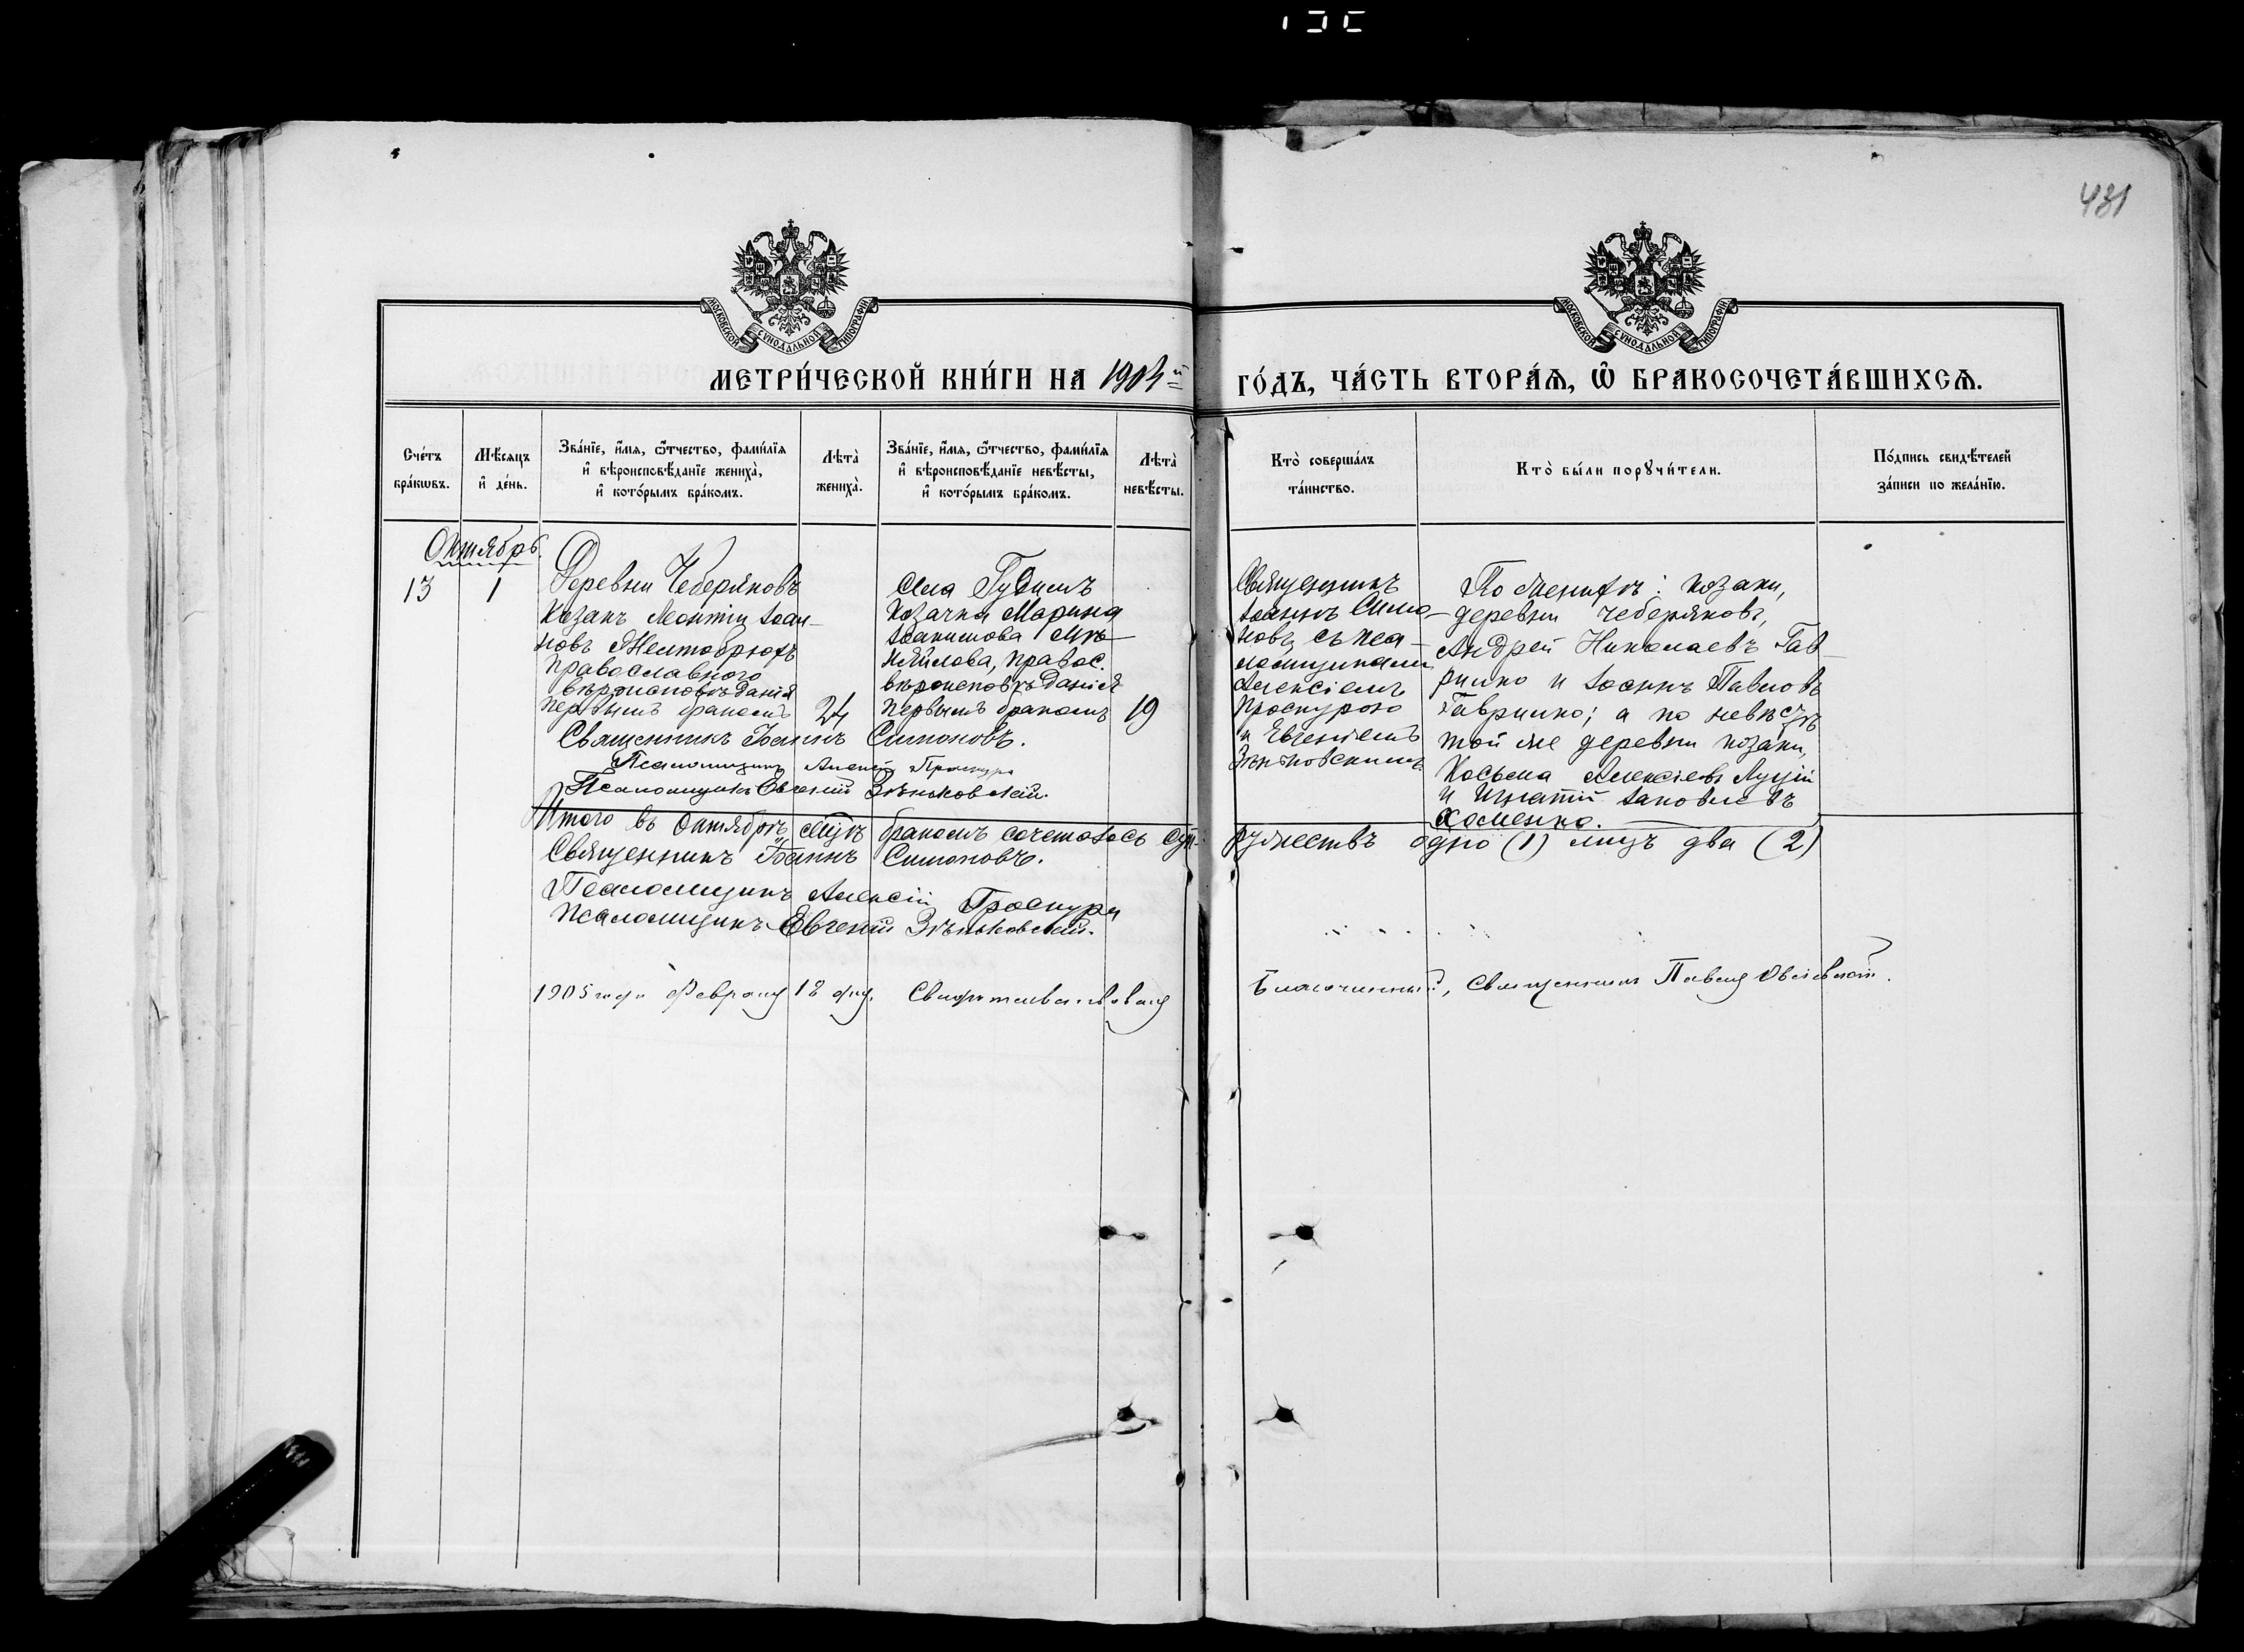 431
МОСКОВСКОЙ СУНОДАЛЬНОЙ ТИПОГРАФІИ
МОСКОВСКОЙ СУНОДАЛЬНОЙ ТИПОГРАФІИ
МЕТРИ́ЧЕСКОЙ КНИ́ГИ НА 1904й ГО́ДЪ, ЧА́СТЬ ВТОРА́Ѧ, Ѽ БРАКОСОЧЕТА́ВШИХСѦ.
Сче́тъ бра́кѡвъ.
Мѣ́сяцъ и҆ де́нь.
Зва́нїе, и҆́мѧ, ѻ҆́тчество, фами́лїѧ
и҆ вѣроисповѣ́данїе жениха̀,
и҆ кото́рымъ бра́комъ.
Лѣта̀ жениха̀.
Зва́нїе, и҆́мѧ, ѻ҆́тчество, фами́лїѧ
и҆ вѣроисповѣ́данїе невѣ́сты,
и҆ кото́рымъ бра́комъ.
Лѣта̀ невѣ́сты.
Кто̀ соверша́лъ
та́инство.
Кто̀ бы́ли порꙋчи́тели.
По́дпись свидѣ́телей
за́писи по жела́нїю.
Октябрь.
13
1
Деревни Чеберяковъ
Козакъ Леонтій Іоан-
новъ Желтобрюхъ
православнаго
вѣроисповѣданія
первымъ бракомъ
24
Села Гудимъ
Козачка Марина
Іоакимова
православ.
вѣроисповѣданія
первымъ бракомъ
19
Священникъ
Іоаннъ Симо-
новъ съ пса-
ломщиками
Алексіемъ
Проскурою
и Евгеніемъ
Зѣньковскимъ.
По женихѣ: козаки,
деревни Чеберяковъ,
Андрей Николаевъ Гав-
рилко и Іоаннъ Павловъ
Гаврилко; а по невѣстѣ
той же деревни козаки,
Косьма Алексіевъ
и Игнатій Іаковлевъ
Хоменко.
Священникъ Іоаннъ Симоновъ.
Псаломщикъ Алексій Проскура
Псаломщикъ Евгеній Зѣньковскій.
Итого въ Октябрѣ м-цѣ бракомъ сочеталось суп-ружествъ одно (1) лицъ два (2)
Священникъ Іоаннъ Симоновъ.
Псаломщикъ Алексій Проскура
Псаломщикъ Евгеній Зѣньковскій.
1905 года Февраля 18 дня. Свидѣтельствовалъ Благочинный, Священникъ Павелъ